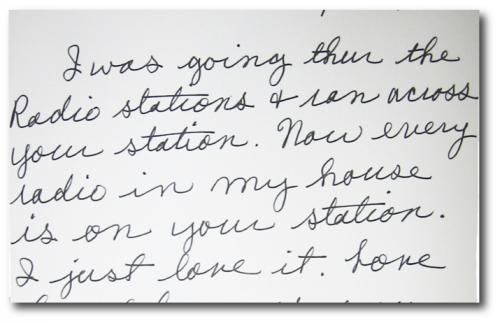 I was going thru the
Radio stations & ran across
your station. Now every
radio in my house
is on your station.
I just love it. Love